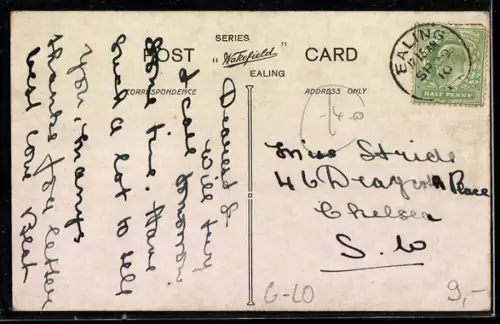 SERIES
POST "Wakefield" CARD
EALING
CORRESPONDENCE
ADDRESS ONLY
EALING
SP
10
HALF PENNY
Dearest
Will try
& call tomorrow
some time. Have
such a lot to tell
you, many
thanks for letter
best love
Miss Stride
46 Draycott Place
Chelsea
S.W
6-10
9,-